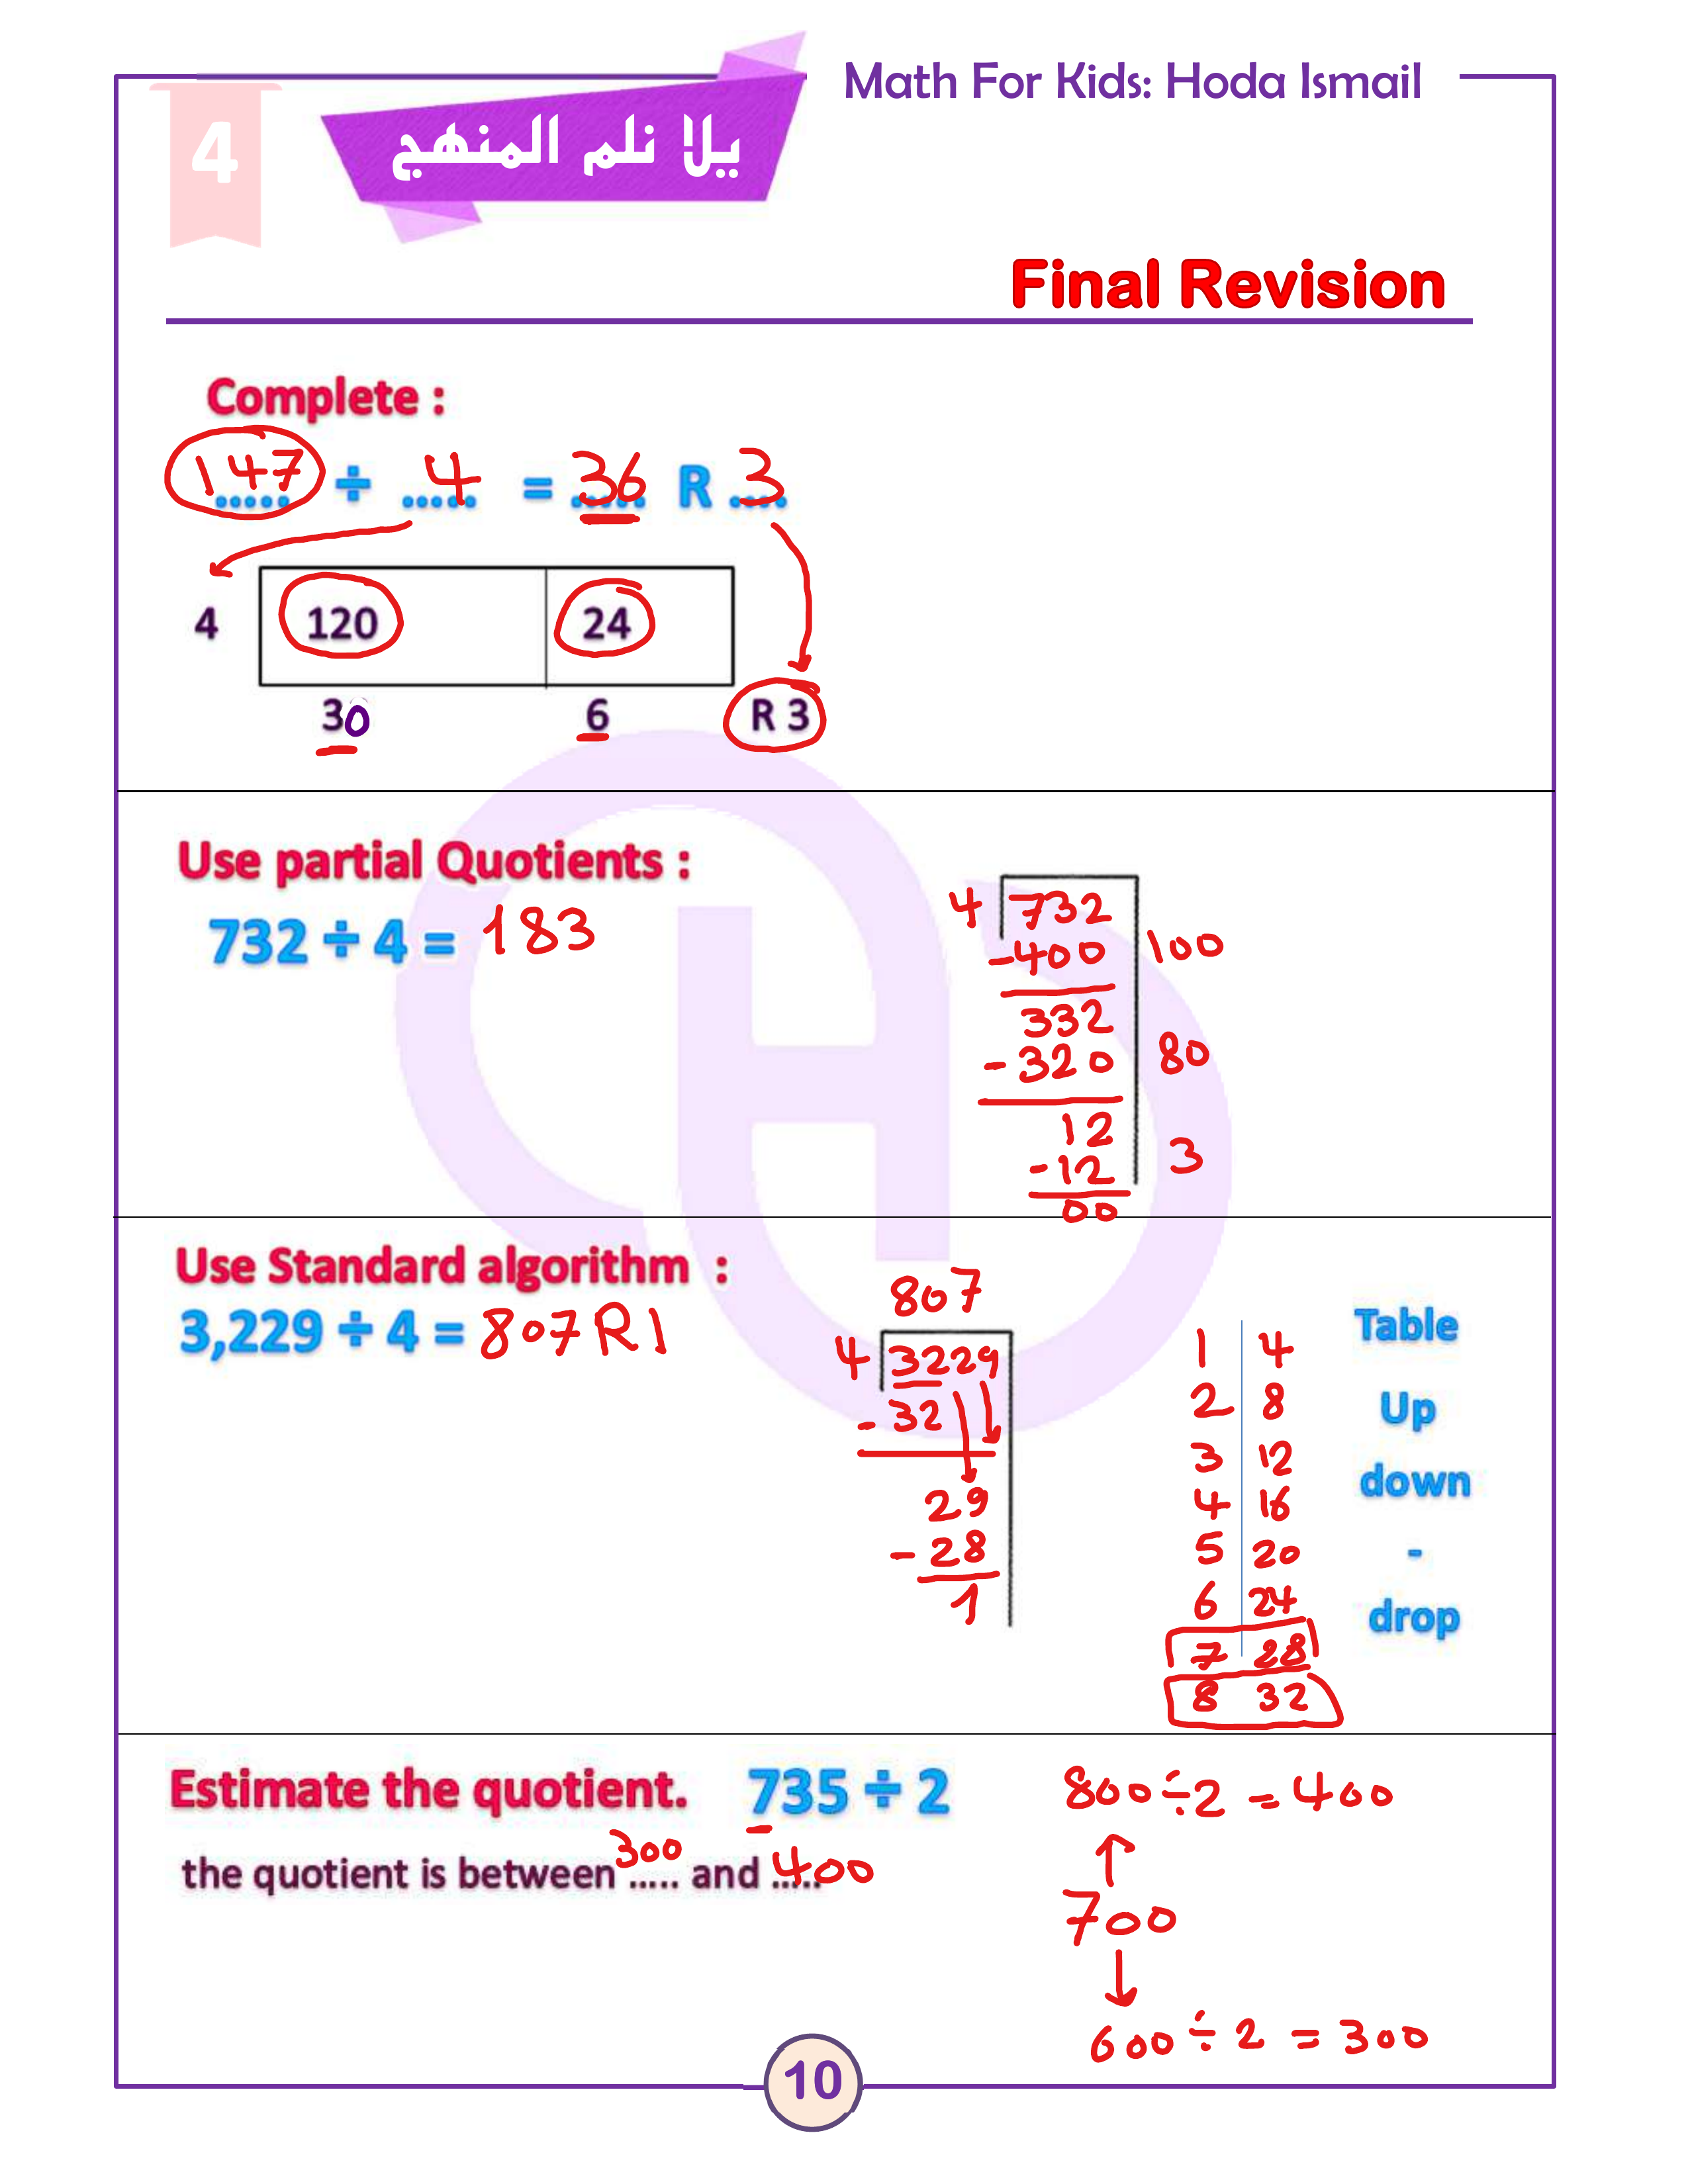 Math For Kids: Hoda Ismail
4
يلا نلم المنهج
Final Revision
Complete :
147 ÷ 4 = 36 R 3
4 120 24
30 6 R 3
Use partial Quotients :
732 ÷ 4 = 183
4 732
-400 100
332
-320 80
12
-12 3
00
Use Standard algorithm :
3,229 ÷ 4 = 807 R 1
807
4 3229
-32
29
-28
1
1 4
2 8
3 12
4 16
5 20
6 24
7 28
8 32
Table
Up
down
-
drop
Estimate the quotient. 735 ÷ 2
the quotient is between 300 ..... and 400 .....
800 ÷ 2 = 400
700
600 ÷ 2 = 300
10